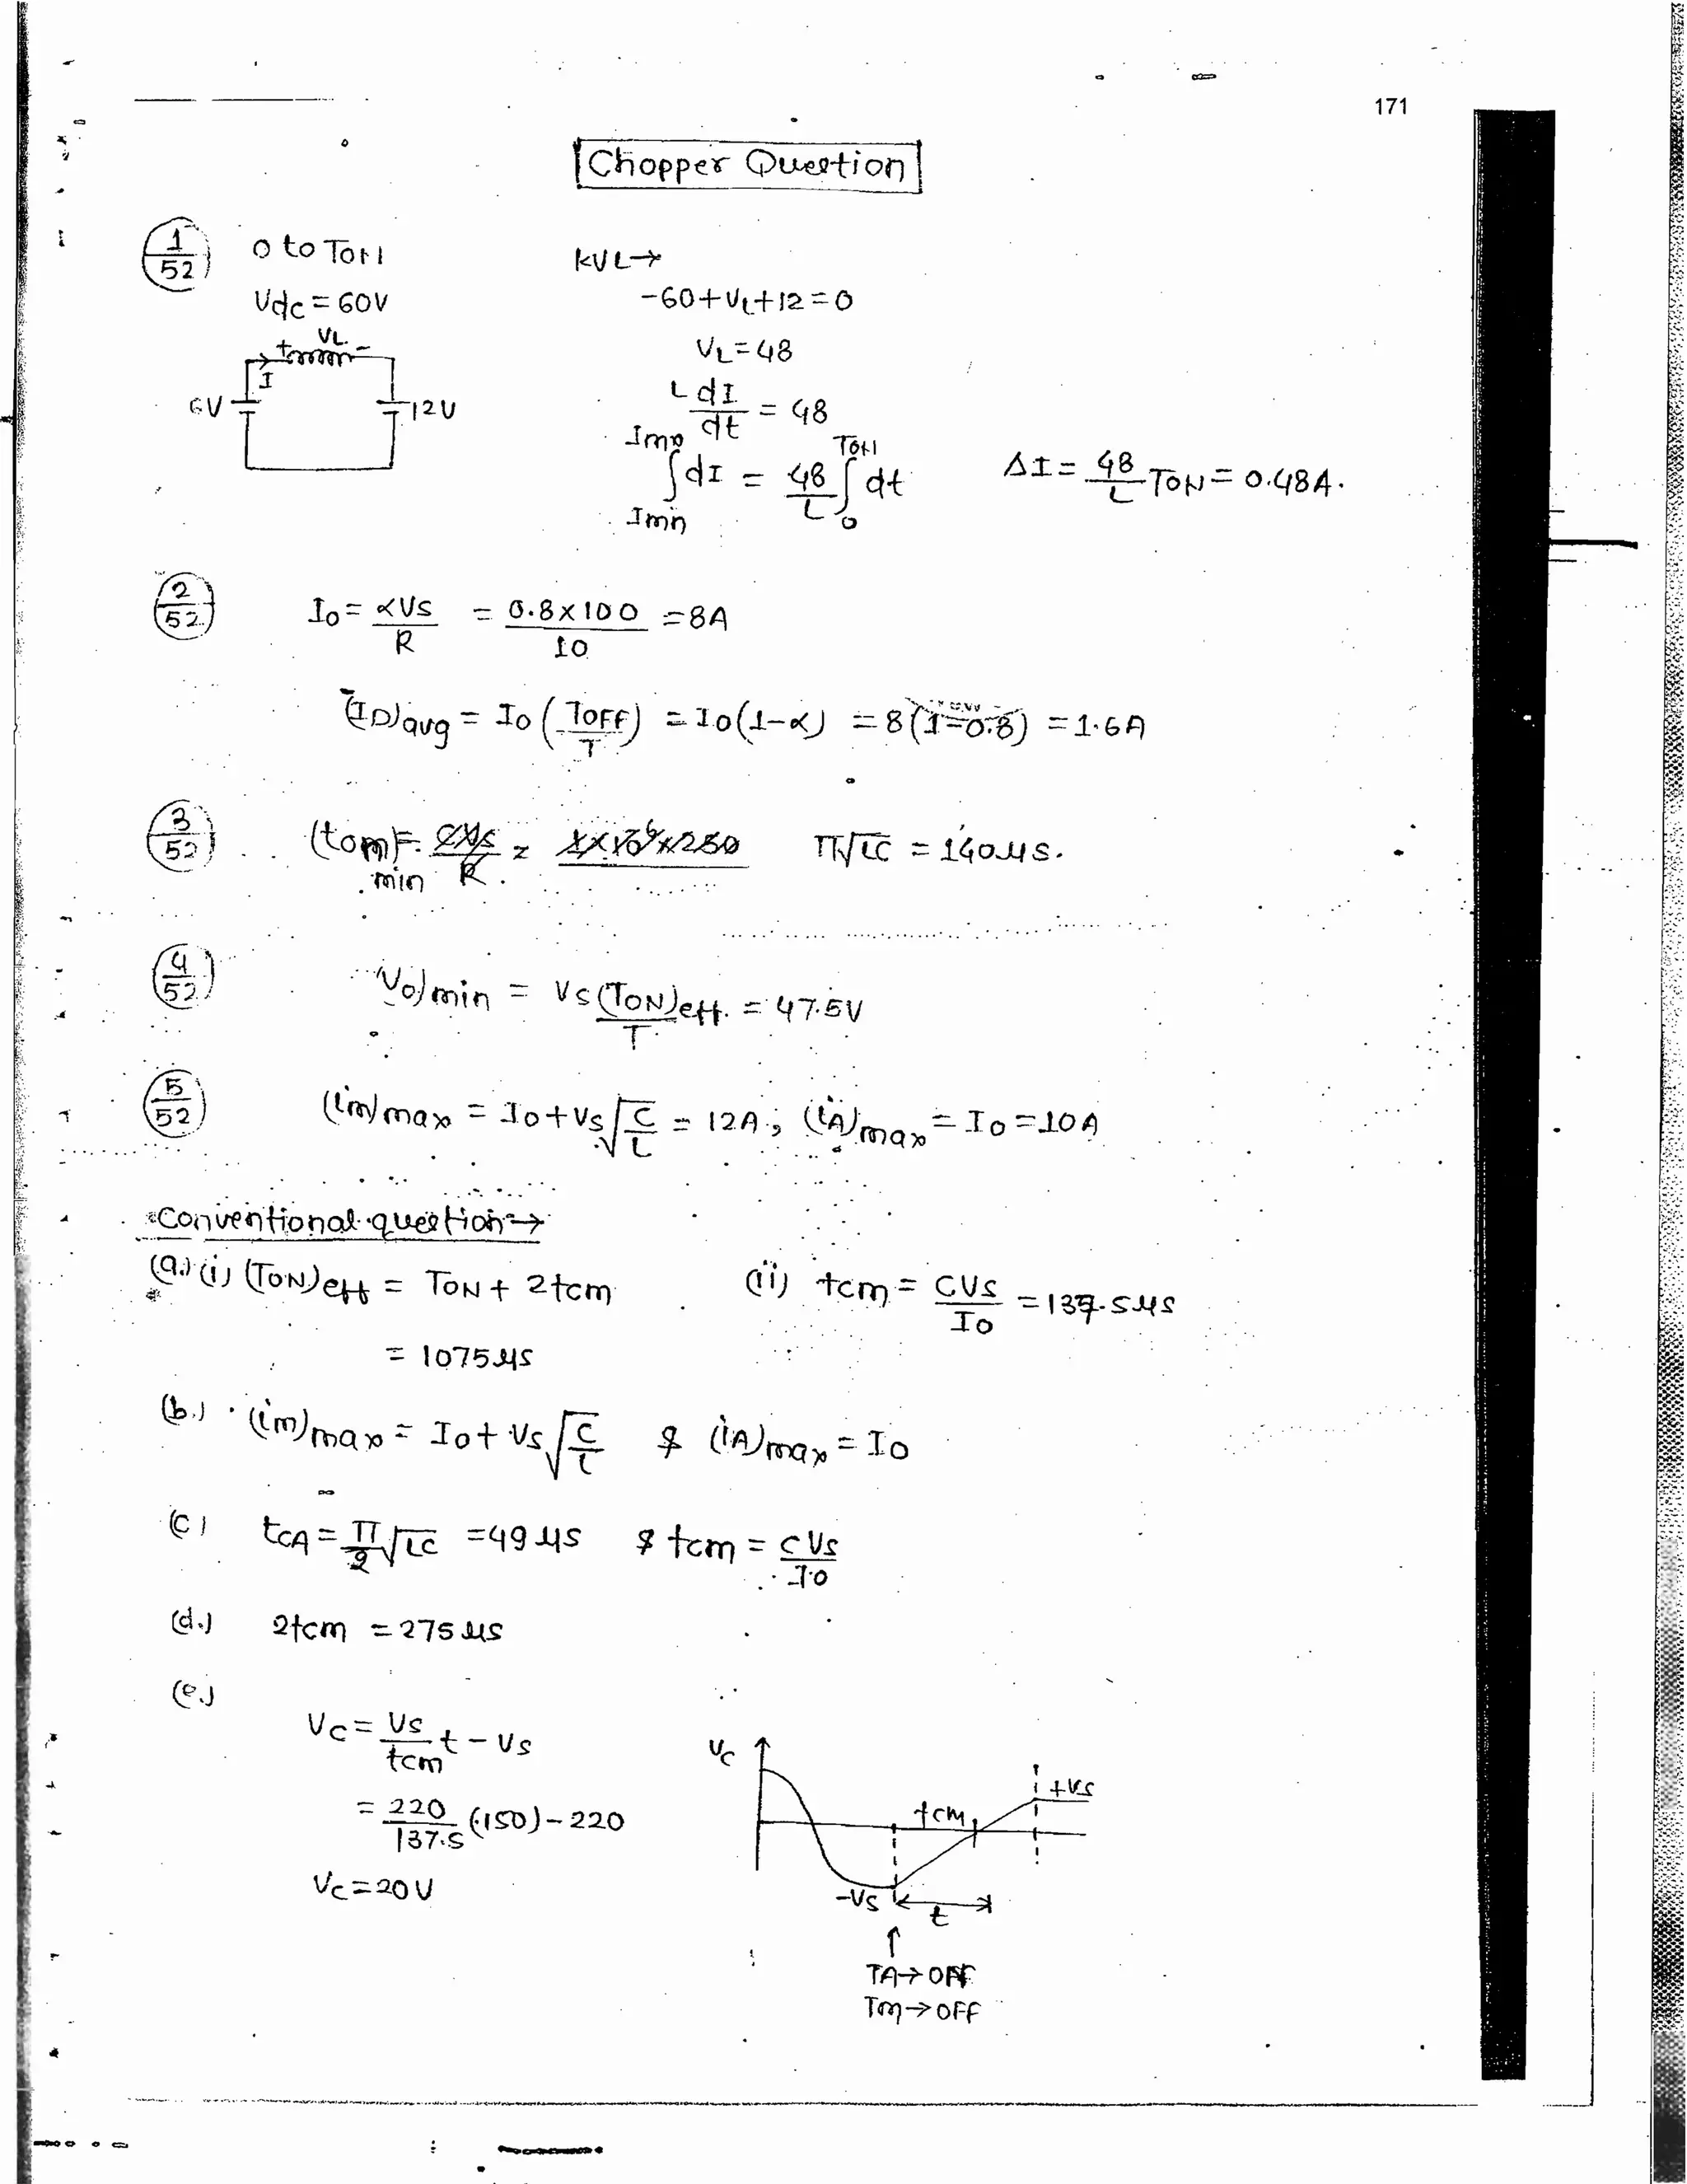 171
Chopper Question
1/52 0 to TON
Vdc = 60V
VL
+ -
I
6V 12V
KVL→
-60+VL+12=0
VL=48
L dI/dt = 48
∫ Imin to Imax dI = 48/L ∫ 0 to TON dt
ΔI = 48/L TON = 0.48A.
2/52 Io = αVs/R = 0.8×100/10 = 8A
(ID)avg = Io (TOFF/T) = Io(1-α) = 8(1-0.8) = 1.6A
3/52 (tom)min = π√LC = 140μs.
4/52 Vo)min = Vs(TON)eff./T = 47.5V
5/52 (im)max = Io+Vs√C/L = 12A, (iA)max = Io = 10A
Conventional question→
(a.) (i) (TON)eff = TON + 2tcm
= 1075μs
(ii) tcm = CVs/Io = 137.5μs
(b.) (im)max = Io + Vs√C/L & (iA)max = Io
(c) tCA = π/2 √LC = 49μs & tcm = CVs/Io
(d.) 2tcm = 275μs
(e.)
Vc = Vs/tcm t - Vs
= 220/137.5 (150) - 220
Vc = 20V
Vc
+Vs
tcm
-Vs
t
↑
TA→OFF
Tm→OFF